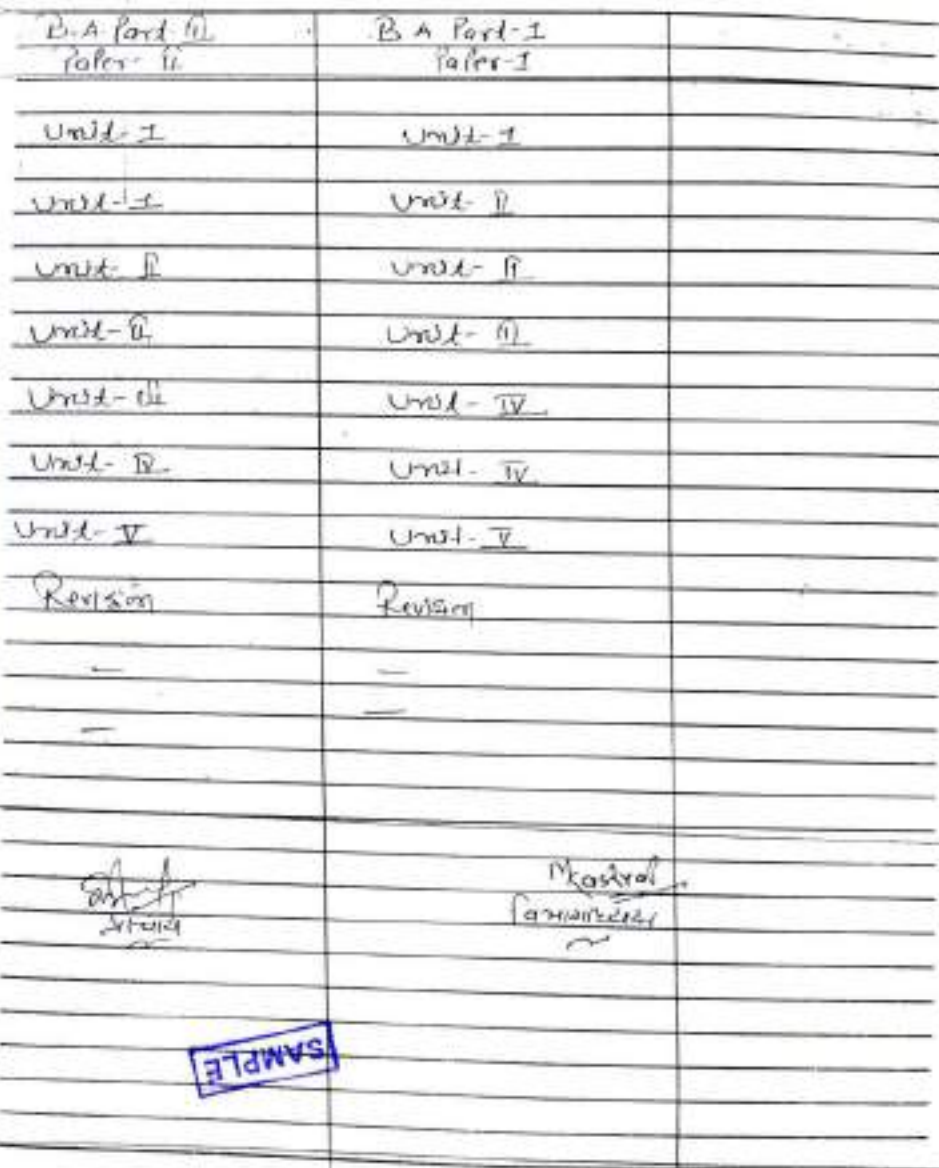 B.A Part II B A Part-I
Paper- ii Paper-I
Unit-I Unit-I
Unit-I Unit- II
Unit- II Unit- II
Unit-II Unit-
Unit- iii Unit - IV
Unit- IV Unit- IV
Unit-V Unit-V
Revision Revision
- -
- -
विभागाध्यक्ष
SAMPLE